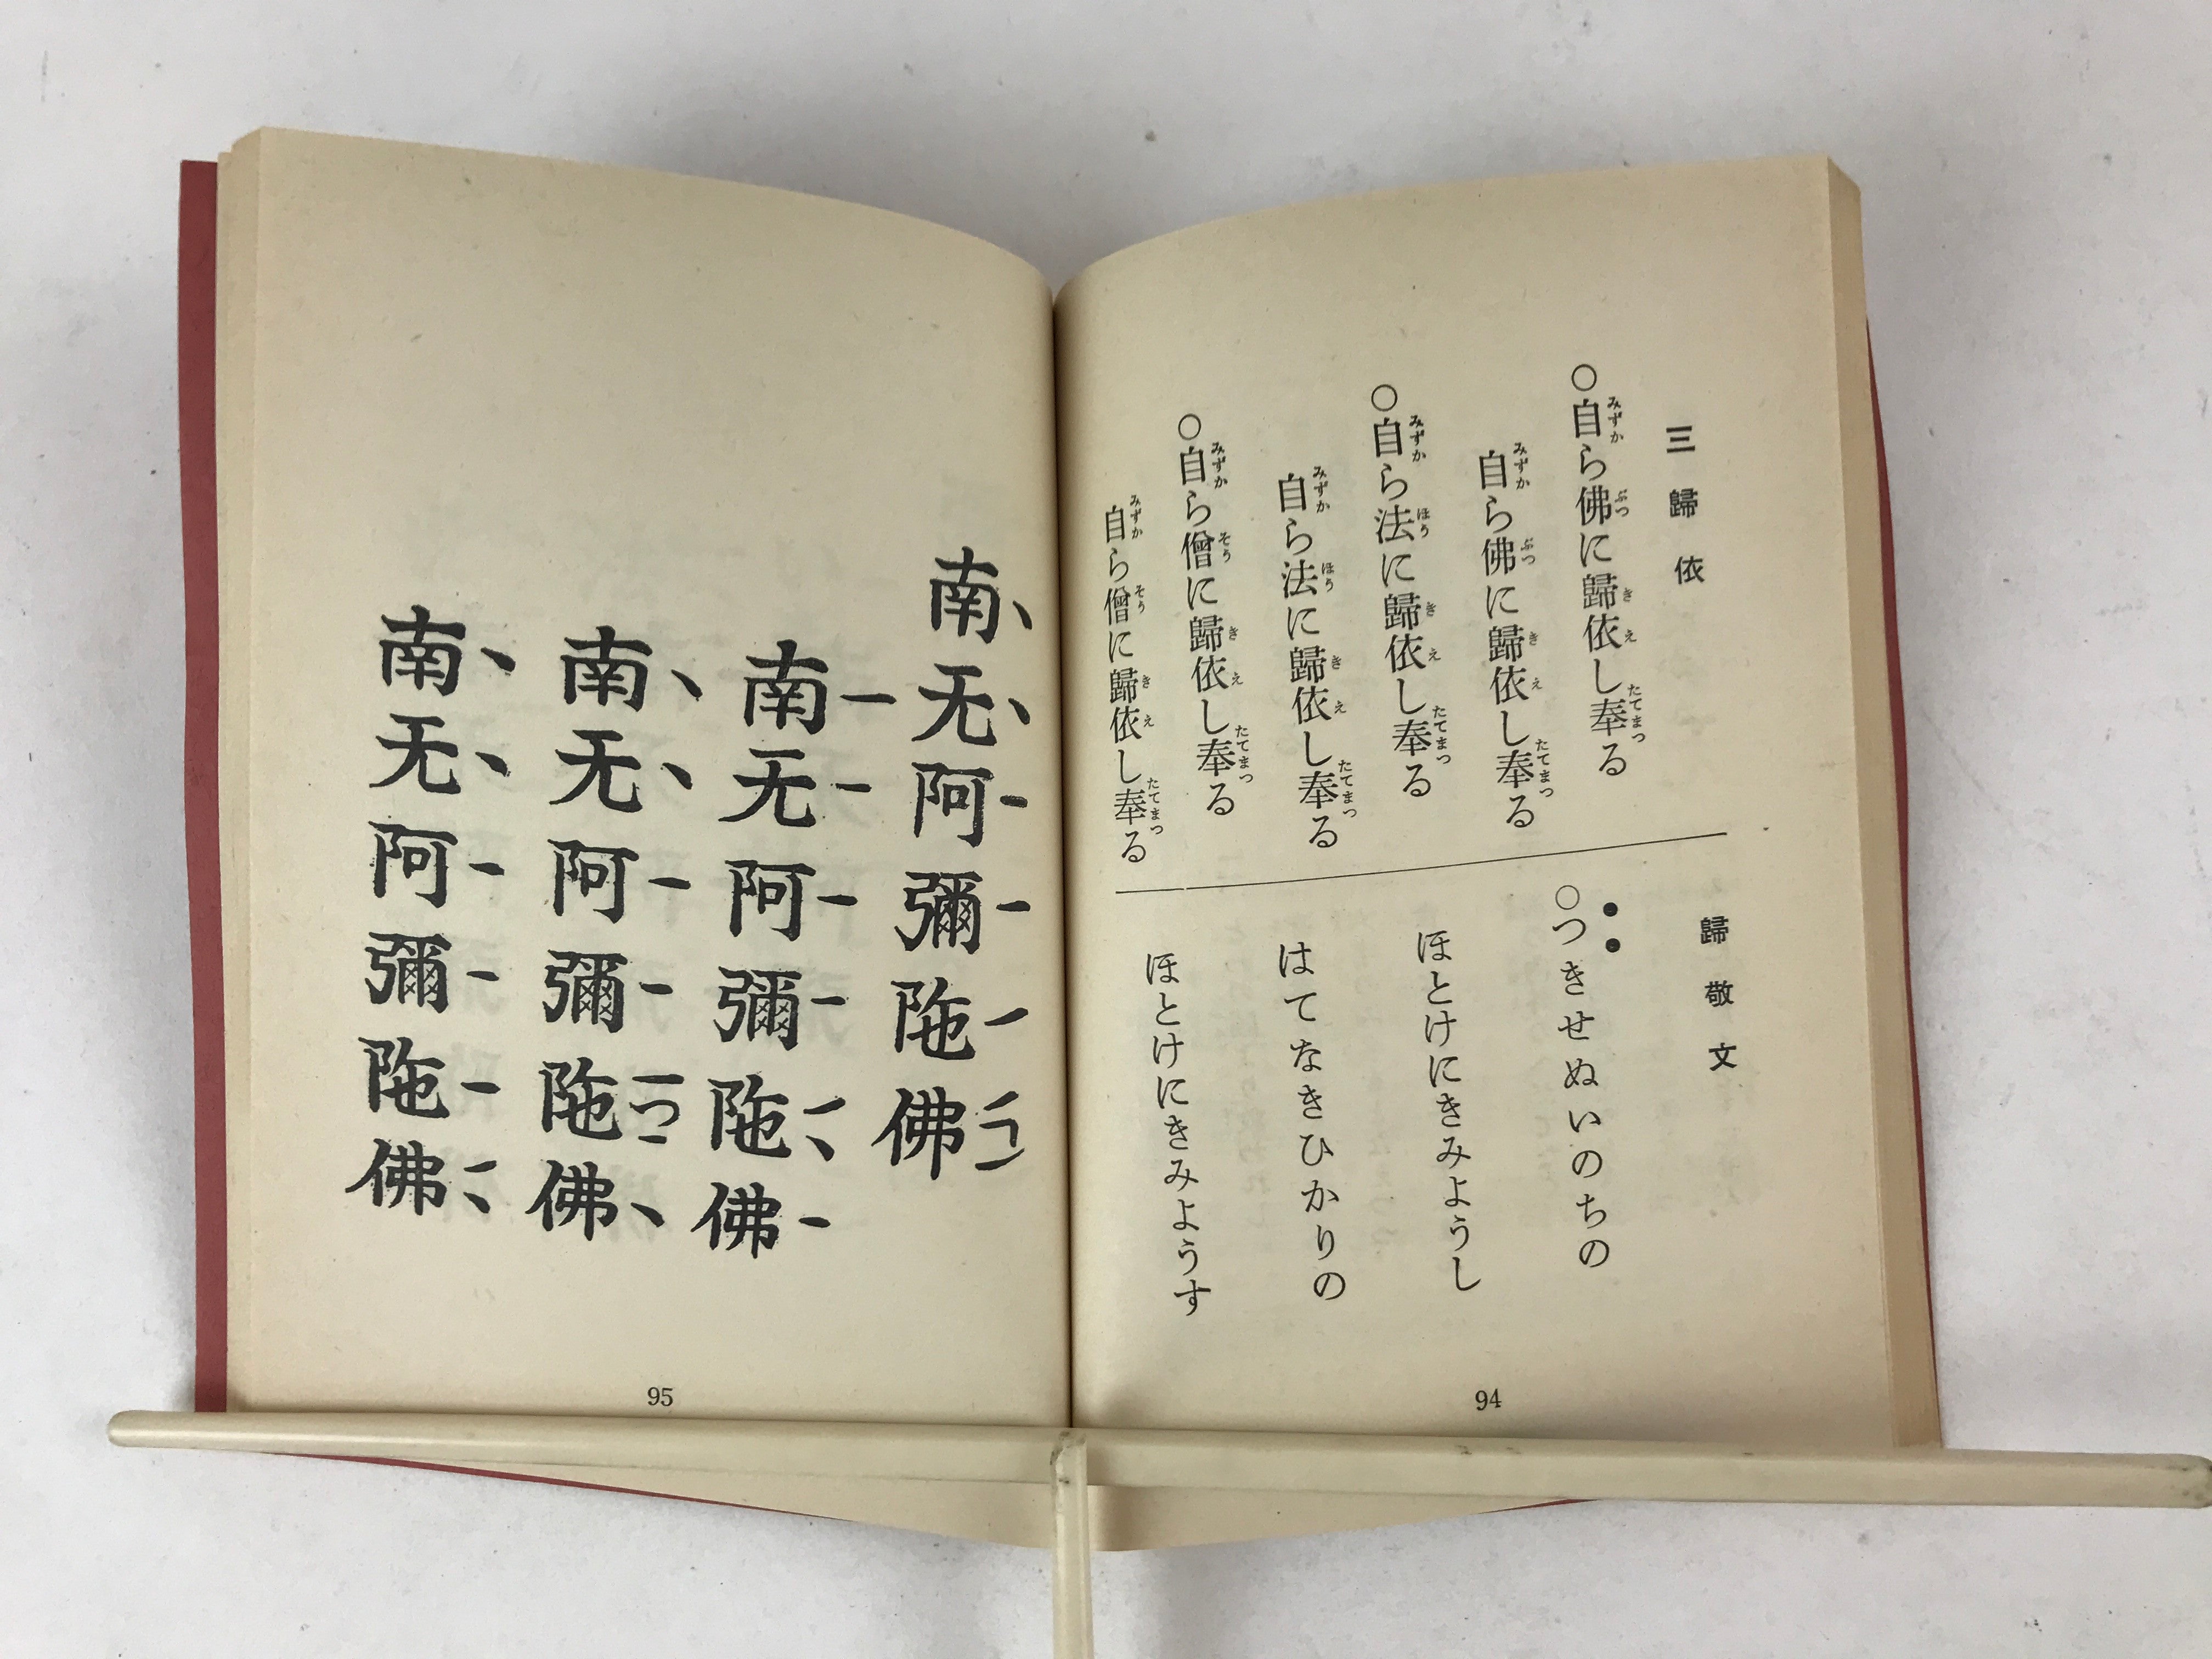 三歸依
○自ら佛に歸依し奉る
自ら佛に歸依し奉る
○自ら法に歸依し奉る
自ら法に歸依し奉る
○自ら僧に歸依し奉る
自ら僧に歸依し奉る
歸敬文
○つきせぬいのちの
ほとけにきみようし
はてなきひかりの
ほとけにきみようす
94
南无阿彌陁佛
南无阿彌陁佛
南无阿彌陁佛
南无阿彌陁佛
95